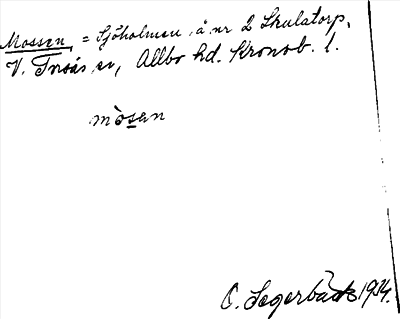 Mossen, = Sjöholmen, å nr 2 Skulatorp,
V. Torsås sn, Allbo hd. Kronob. l.
mòsen
O. Segerbäck 1934.